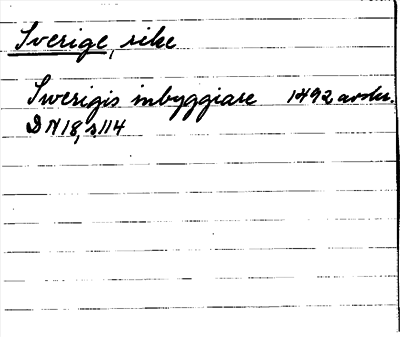 Sverige, rike
Swerigis inbyggiare 1492 avskr.
DN 18, s. 114